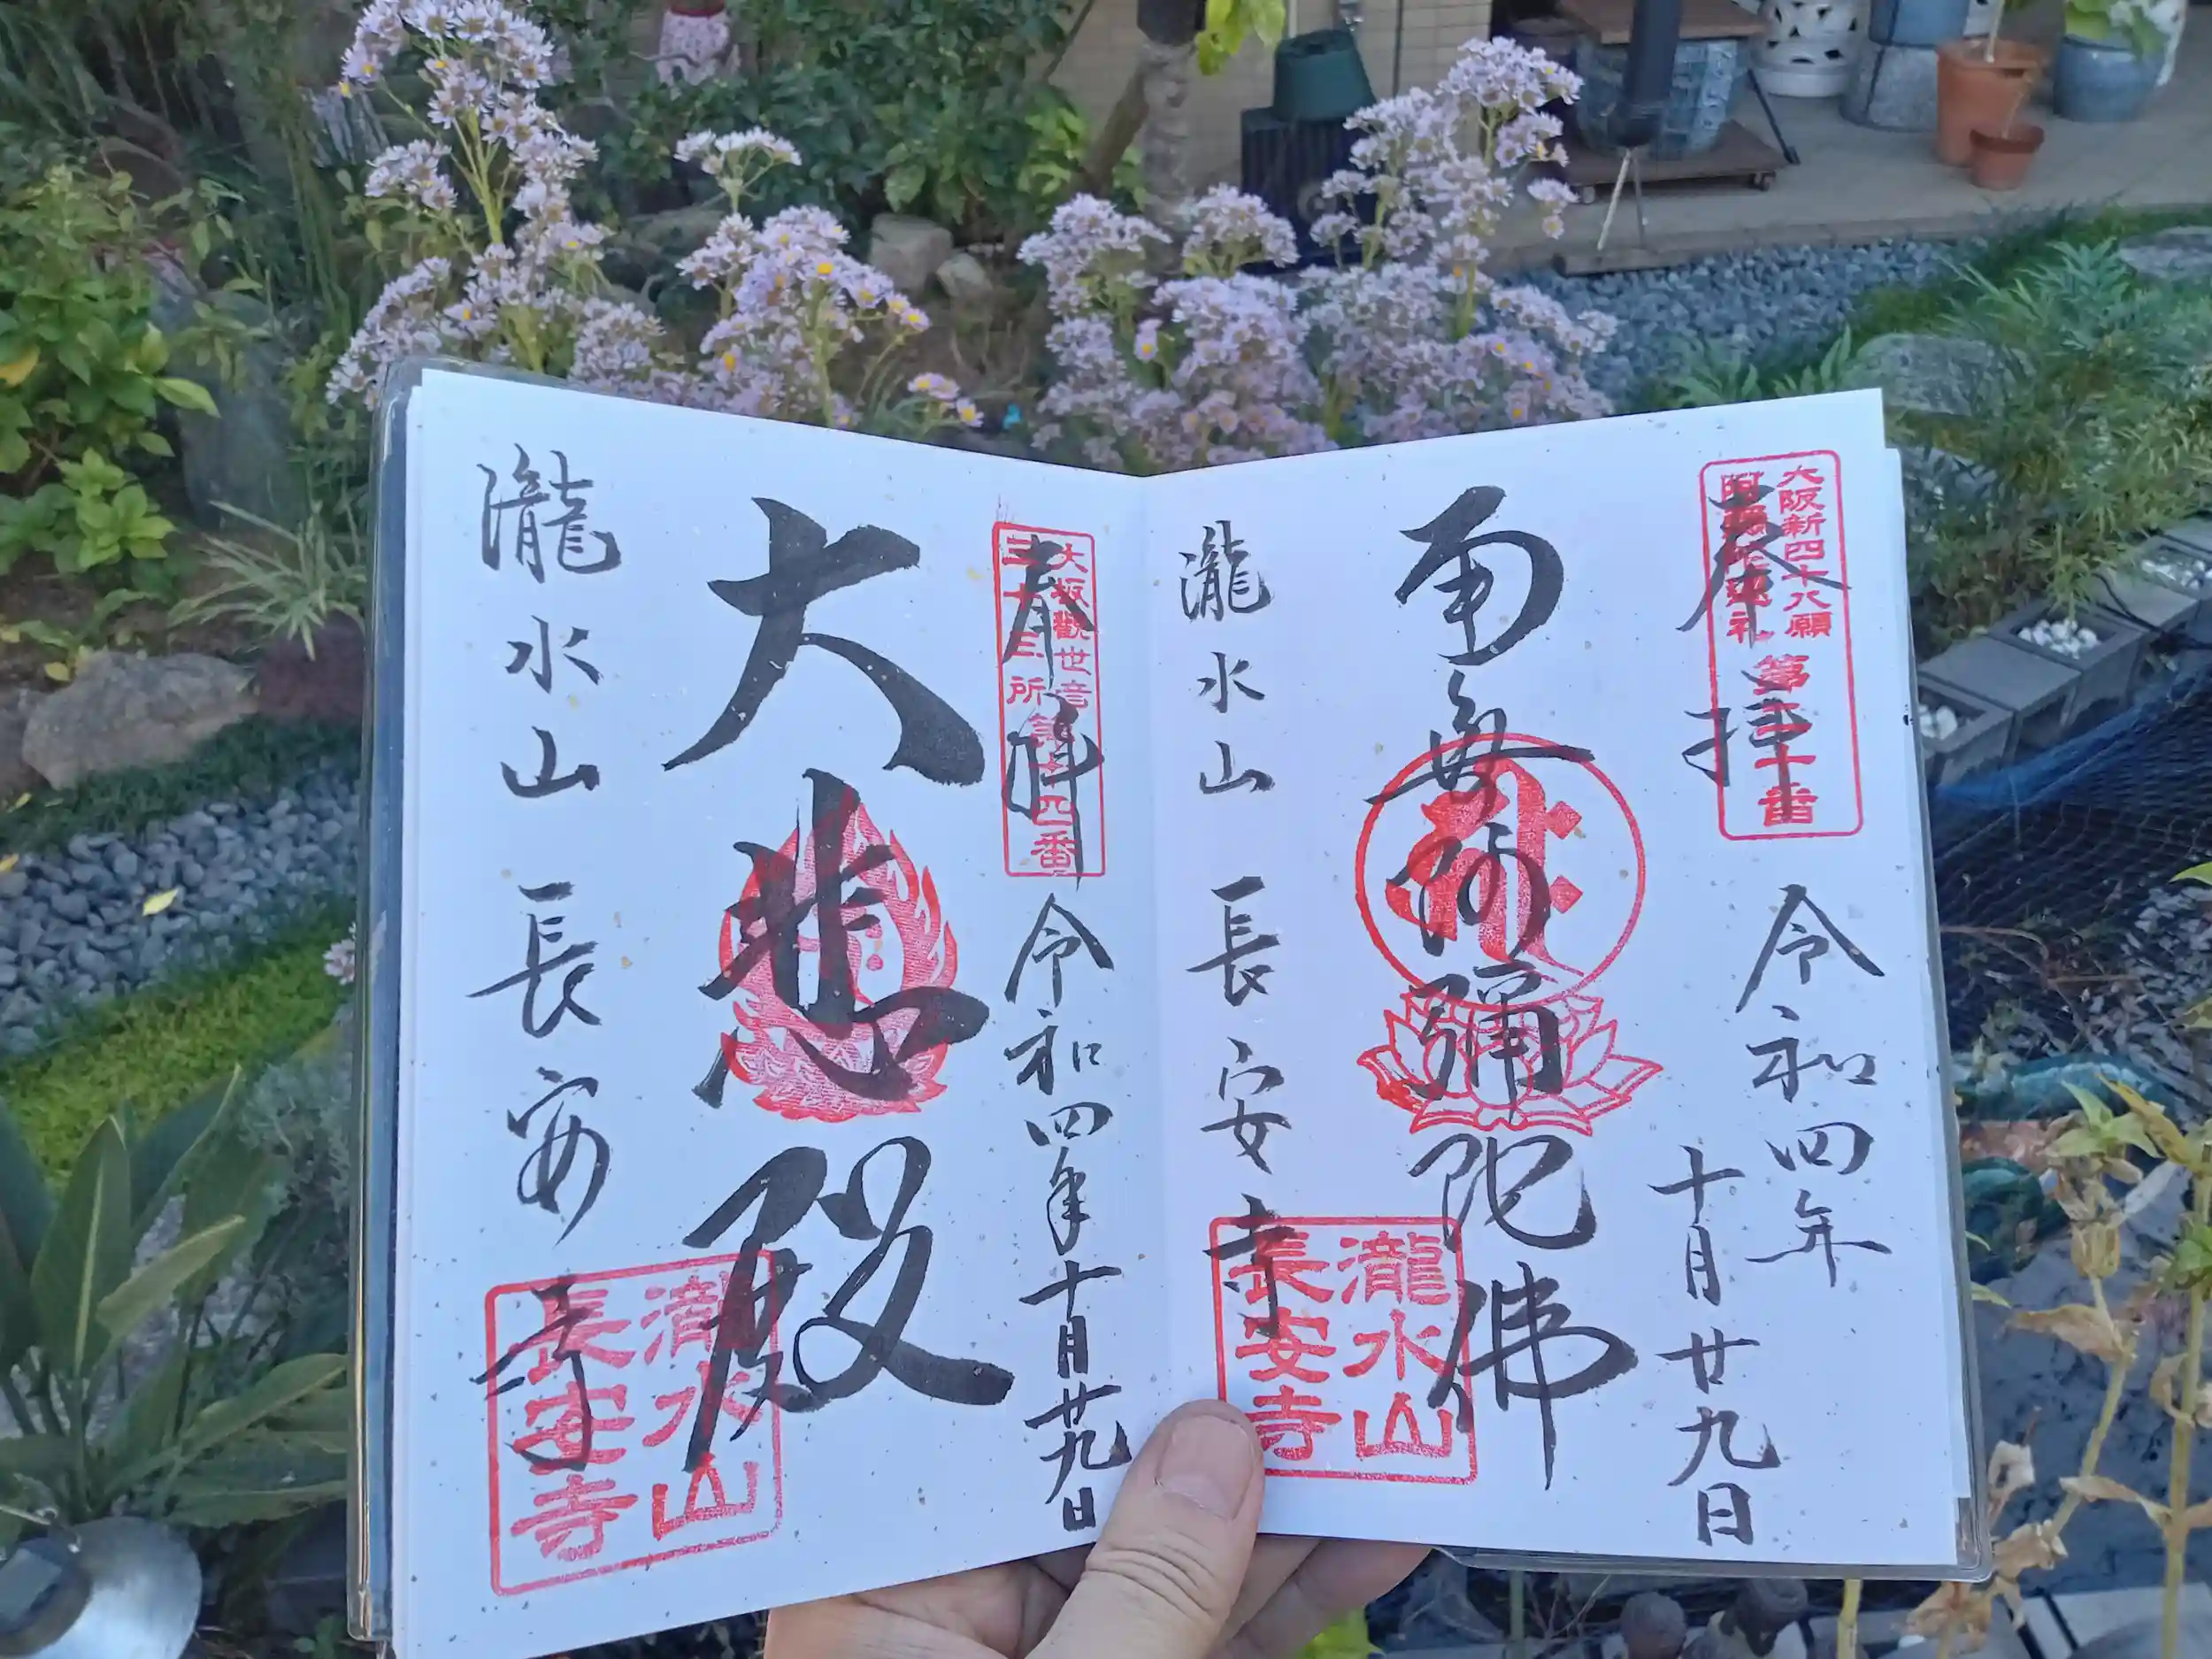 大阪新四十八願
阿彌陀巡礼
第三十番
奉拝
令和四年
十月廿九日
南無阿彌陀佛
瀧水山 長安寺
瀧水山
長安寺
大坂觀世音
三十三所
第十四番
奉拝
令和四年十月廿九日
大悲殿
瀧水山 長安寺
瀧水山
長安寺